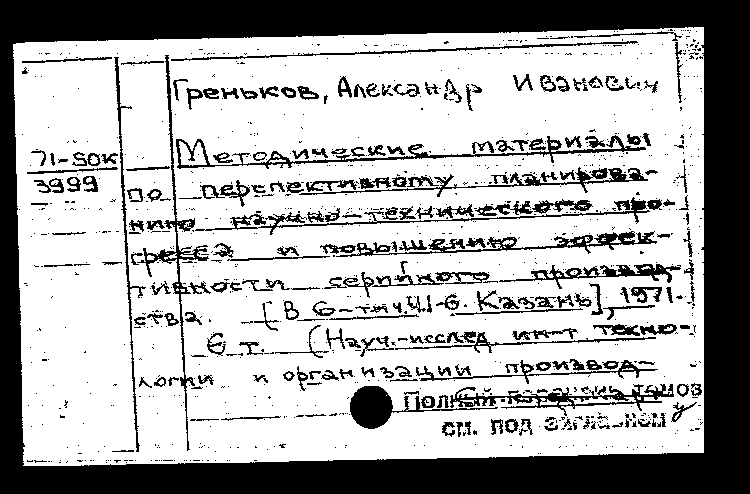 Греньков, Александр Иванович
71-SOK
3999
Методические материалы
по перспективному планирова-
нию научно-технического про-
гресса и повышению эффек-
тивности серийного производ-
ства. [В 6-ти ч. Ч.1-6. Казань], 1971.
6 т. (Науч.-исслед. ин-т техно-
логии и организации производ-
Полный томов
см. под заглавием